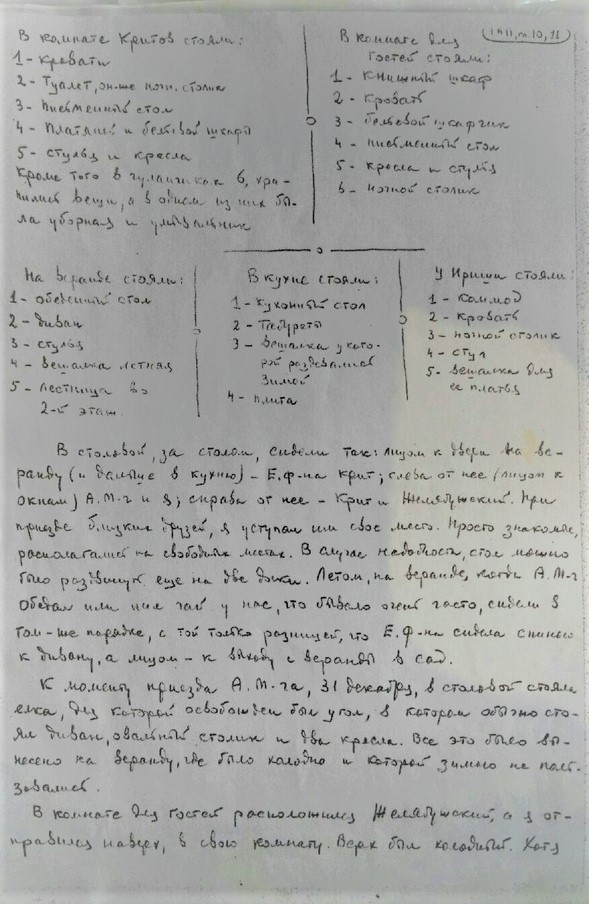 В комнате Критов стояли:
1 - кровати
2 - Туалет, он-же ночн. столик
3 - письменный стол
4 - Платяной и бельевой шкафы
5 - стулья и кресла
Кроме того в чуланчиках 6, хра-
нились вещи, а в одном из них бы-
ла уборная и умывальник
В комнате для
Гостей стояли:
1 - Книжный шкаф
2 - Кровать
3 - бельевой шкафчик
4 - письменный стол
5 - кресла и стулья
6 - ночной столик
На веранде стояли:
1 - обеденный стол
2 - диван
3 - стулья
4 - вешалка летняя
5 - лестница во
2-й этаж.
В кухне стояли:
1 - кухонный стол
2 - Табуреты
3 - вешалка у кото-
рой раздевались
зимой
4 - плита
У Ириши стояли:
1 - Комод
2 - Кровать
3 - ночной столик
4 - стул
5 - вешалка для
ее платья
В столовой, за столом, сидели так: лицом к двери на ве-
ранду (и дальше в кухню) - Е.Ф-на Крит; слева от нее (лицом к
окнам) А.М-ч и я; справа от нее - Крит и Желябужский. При
приезде близких друзей, я уступал им свое место. Просто знакомые,
располагались на свободных местах. В случае надобности, стол можно
было раздвинуть еще на две доски. Летом, на веранде, когда А.М-ч
обедал или пил чай у нас, что бывало очень часто, сидели в
том-же порядке, с той только разницей, что Е.Ф-на сидела спиною
к дивану, а лицом - к выходу с веранды в сад.
К моменту приезда А.М-ча, 31 декабря, в столовой стояла
елка, для которой освобожден был угол, в котором обычно сто-
ял диван, овальный столик и два кресла. Все это было вы-
несено на веранду, где было холодно и которой зимою не поль-
зовались.
В комнате для гостей расположился Желябужский, а я от-
правился наверх, в свою комнату. Верх был холодный. Хотя